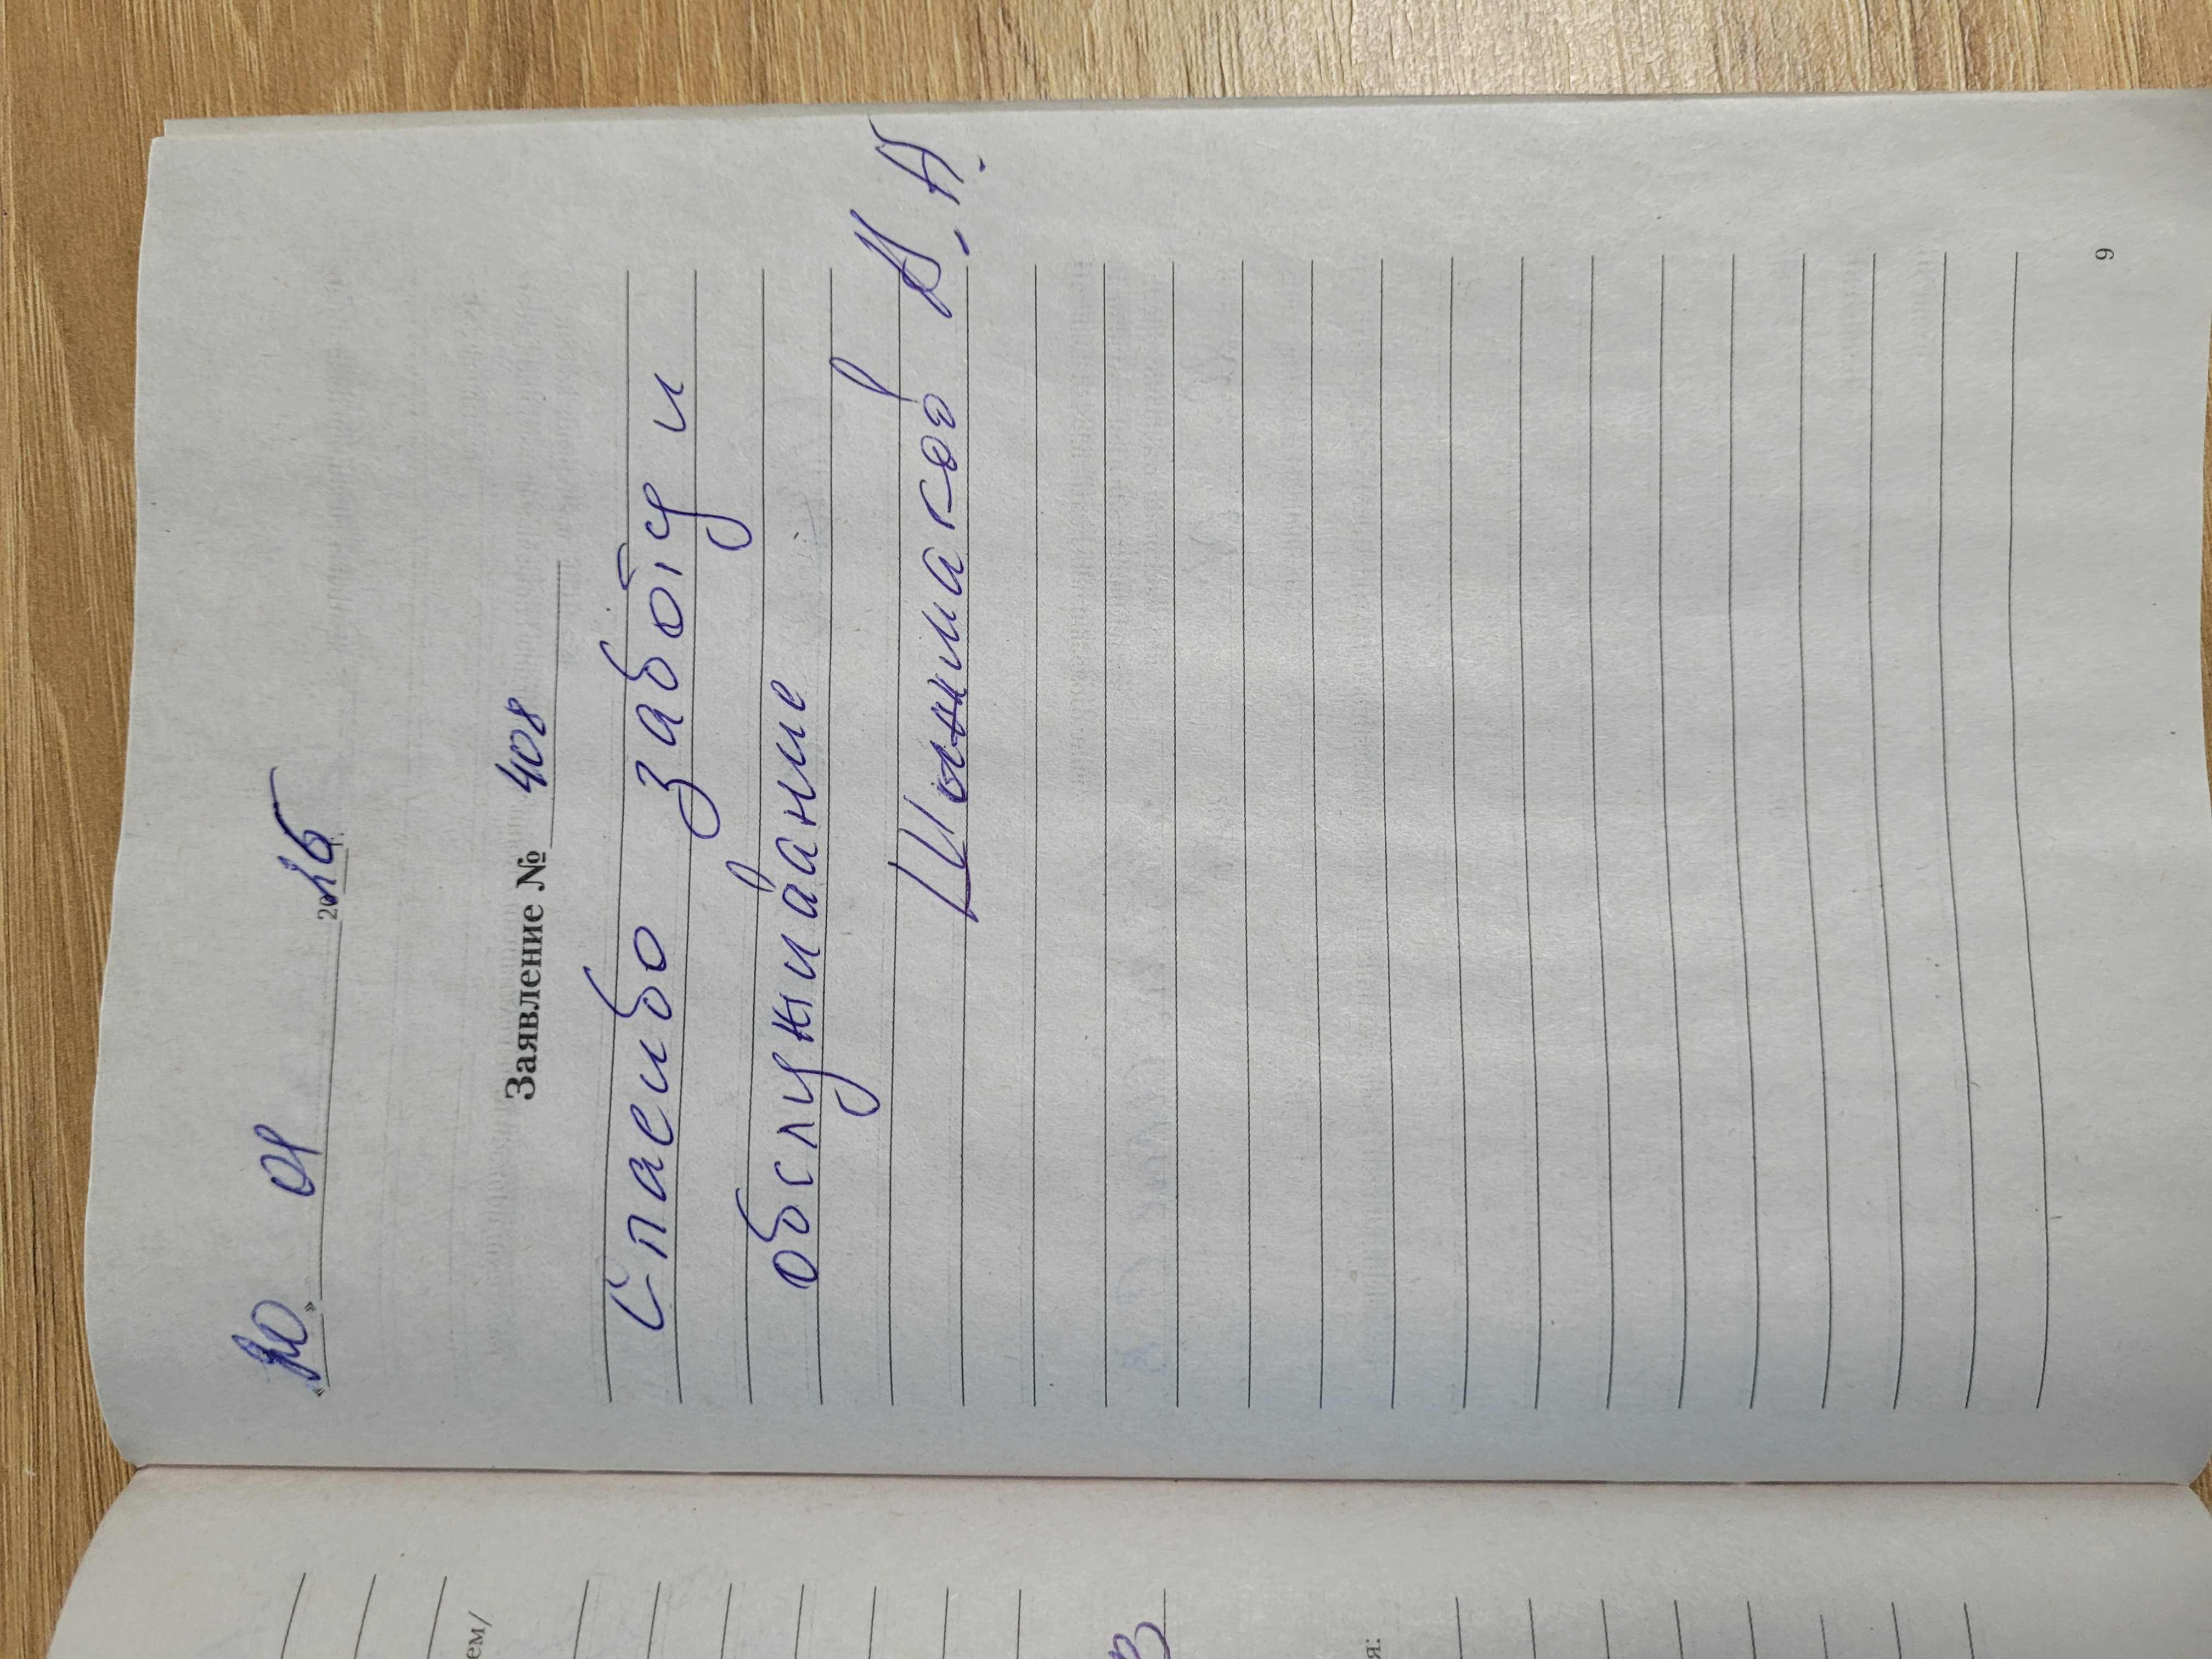 «20» 01 2026 г.
Заявление № 408
Спасибо заботу и
обслуживание
А.А.
9
ем/
В
я: